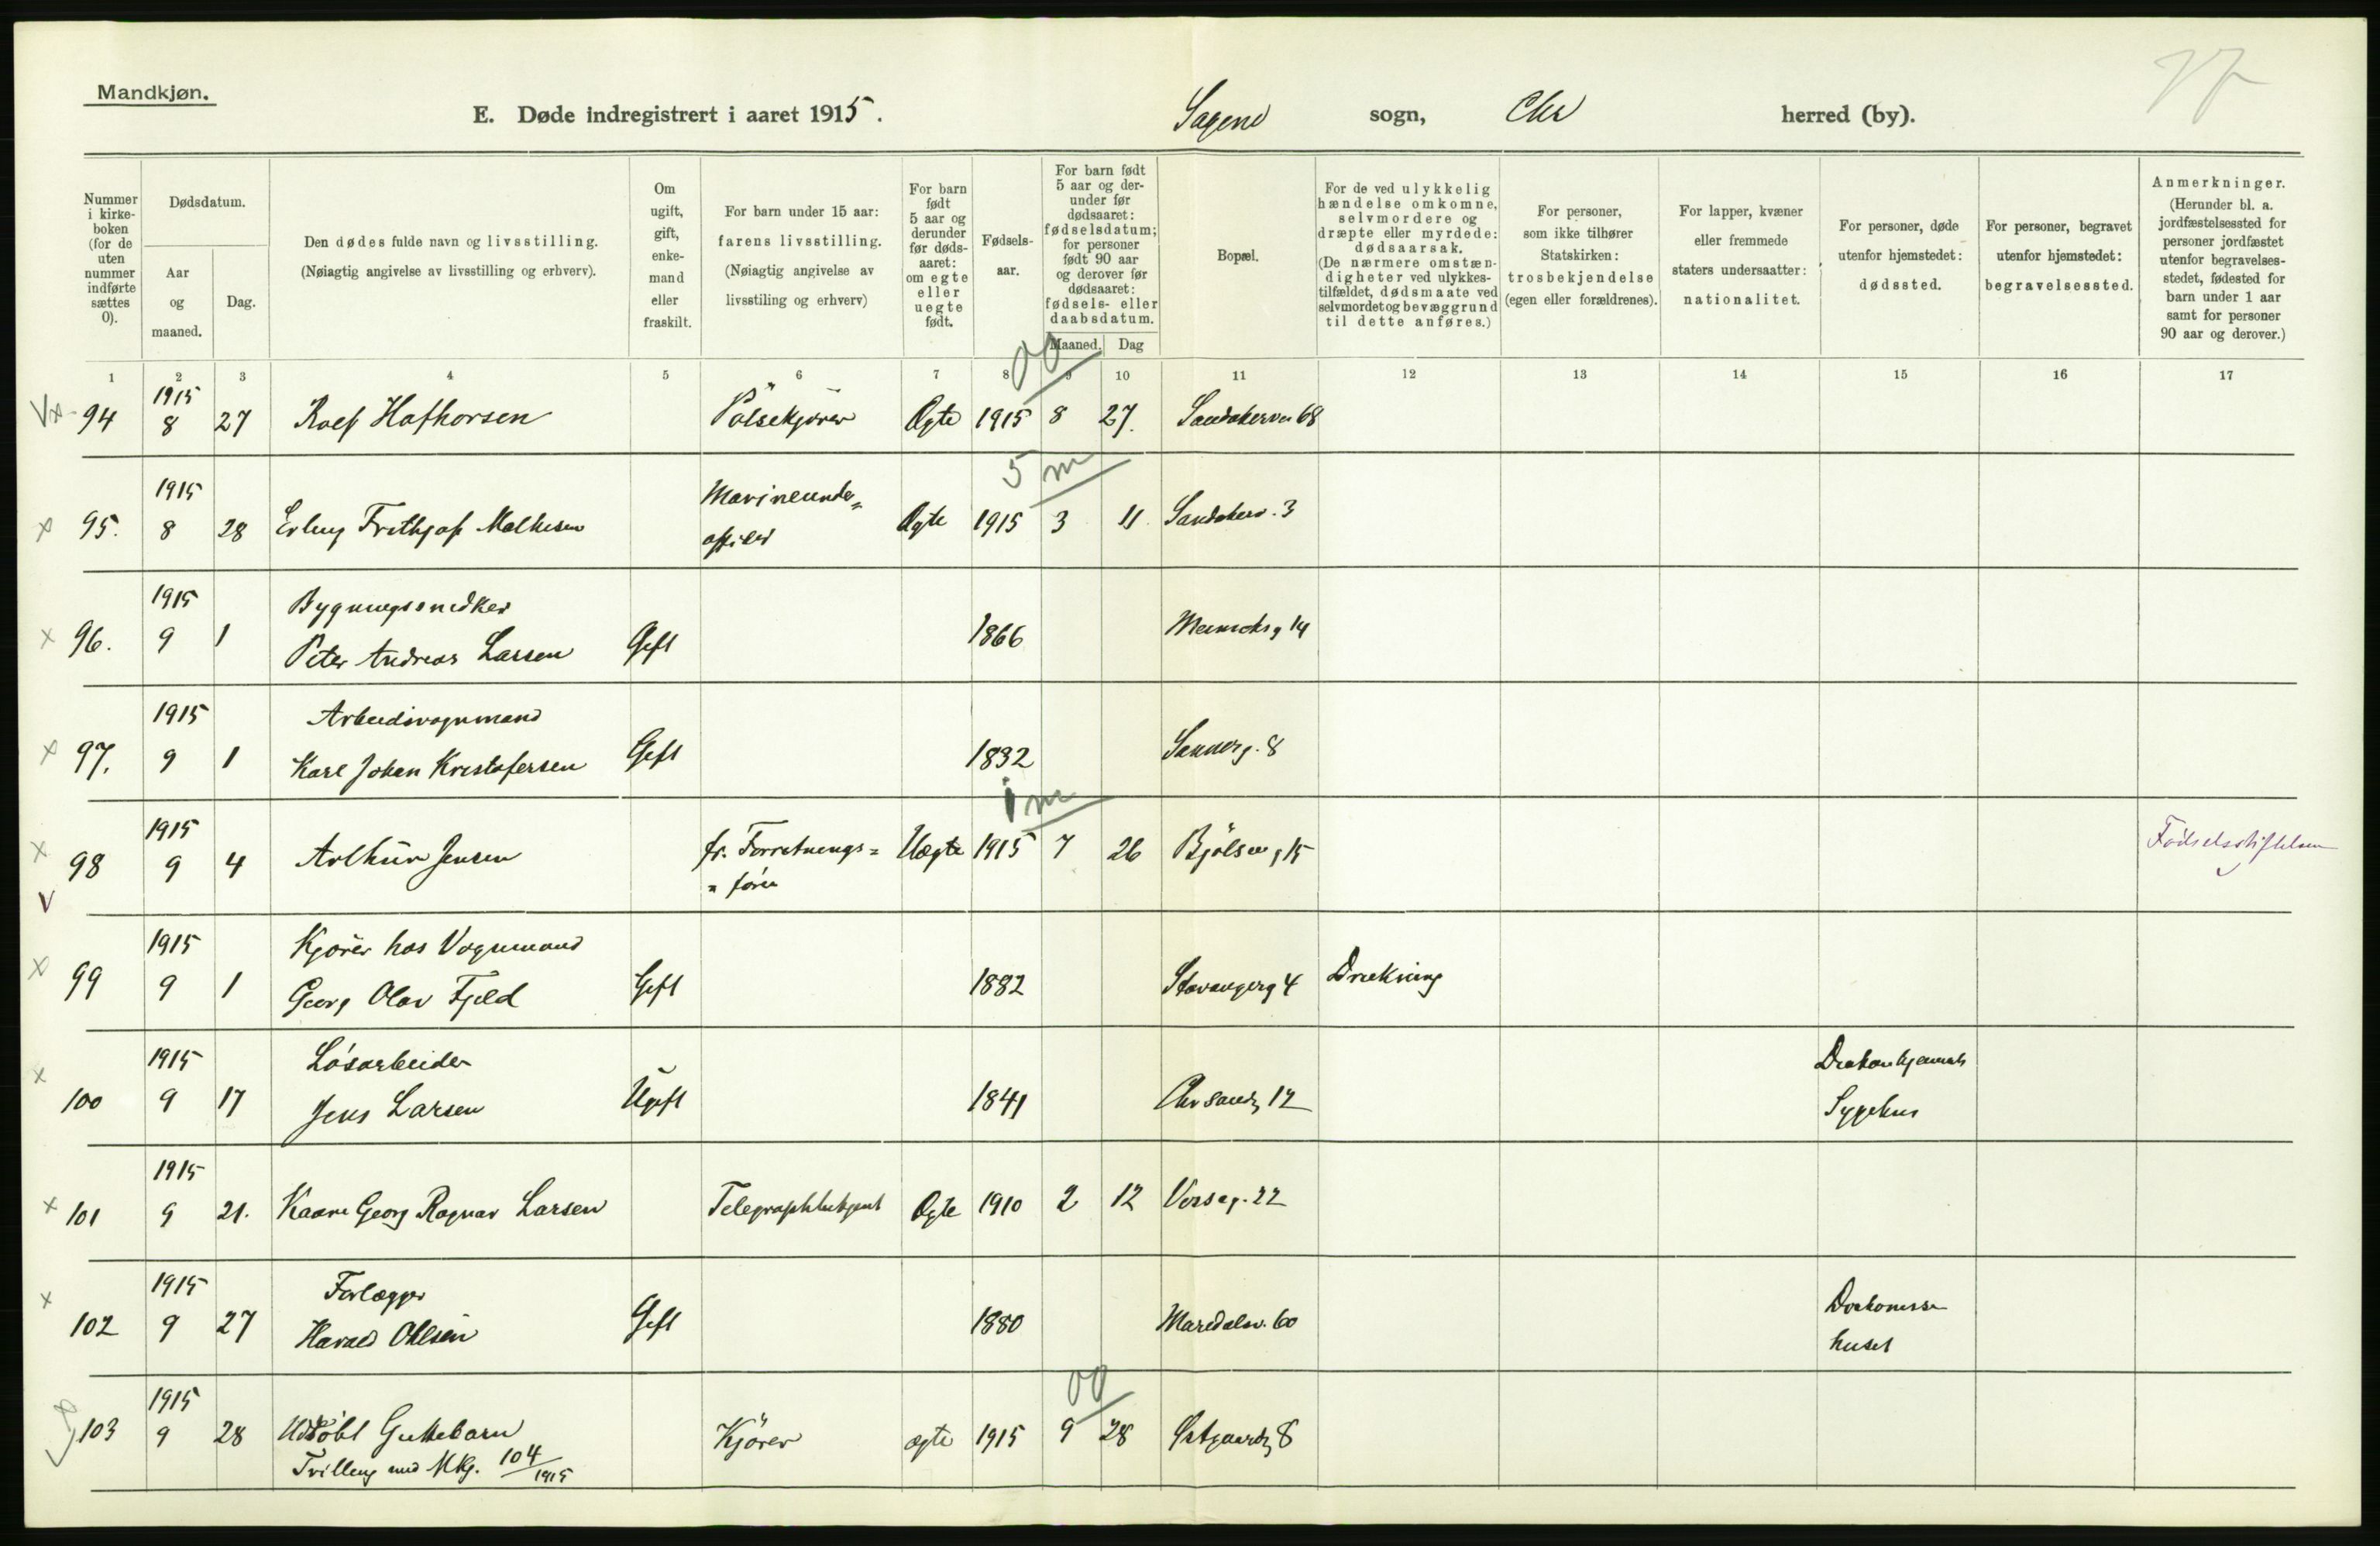 Mandkjøn.
E. Døde indregistrert i aaret 1915. Sagene sogn, Chr herred (by).
Nummer i kirkeboken (for de uten nummer indførte sættes 0).
Dødsdatum.
Aar og maaned.
Dag.
Den dødes fulde navn og livsstilling.
(Nøiagtig angivelse av livsstilling og erhverv).
Om ugift, gift, enkemand eller fraskilt.
For barn under 15 aar: farens livsstilling.
(Nøiagtig angivelse av livsstiling og erhverv)
For barn født 5 aar og derunder før dødsaaret: om egte eller uegte født.
Fødselsaar.
For barn født 5 aar og derunder før dødsaaret: fødselsdatum; for personer født 90 aar og derover før dødsaaret: fødsels- eller daabsdatum.
Maaned. Dag
Bopæl.
For de ved ulykkelig hændelse omkomne, selvmordere og dræpte eller myrdede: dødsaarsak.
(De nærmere omstændigheter ved ulykkestilfældet, dødsmaate ved selvmordet og bevæggrund til dette anføres.)
For personer, som ikke tilhører Statskirken: trosbekjendelse (egen eller forældrenes).
For lapper, kvæner eller fremmede staters undersaatter: nationalitet.
For personer, døde utenfor hjemstedet: dødssted.
For personer, begravet utenfor hjemstedet: begravelsessted.
Anmerkninger.
(Herunder bl. a. jordfæstelsessted for personer jordfæstet utenfor begravelsesstedet, fødested for barn under 1 aar samt for personer 90 aar og derover.)
1 2 3 4 5 6 7 8 9 10 11 12 13 14 15 16 17
00
1915
94 8 27 Rolf Hafhorsen Pölsekjører Ægte 1915 8 27. Sandakerv. 68
5 m
1915 Marineunder=
95. 8 28 Erling Frithjof Mathisen officer Ægte 1915 3 11 Sandakerv. 3
1915 Bygningssnedker
96. 9 1 Peter Andreas Larsen Gift 1866 14
1915 Arbeidsvognmand
97. 9 1 Karl Johan Kristofersen Gift 1832 Sannerg. 8
1 m
1915
98 9 4 Arthur Jensen fr. Forretnings= Uægte 1915 7 26 Bjölseng 15 Fødselsstiftelsen
= fører
1915 Kjører hos Vognmand
99 9 1 Georg Olav Fjeld Gift 1882 Stavangerg 4 Drukning
1915 Løsarbeider
100 9 17 Jens Larsen Ugift 1841 Chrsandg 12 Diakonhjemmets
Sygehus
1915
101 9 21. Kaare Georg Ragnar Larsen Ægte 1910 2 12 22
1915 Forlægger
102 9 27 Harald Ohlsen Gift 1880 Maridalsv. 60 Diakonisse
huset
00
1915
103 9 28 Udøbt Guttebarn Kjører ægte 1915 9 28 Østgaardsg 8
Tvilling med Mkj. 104/1915